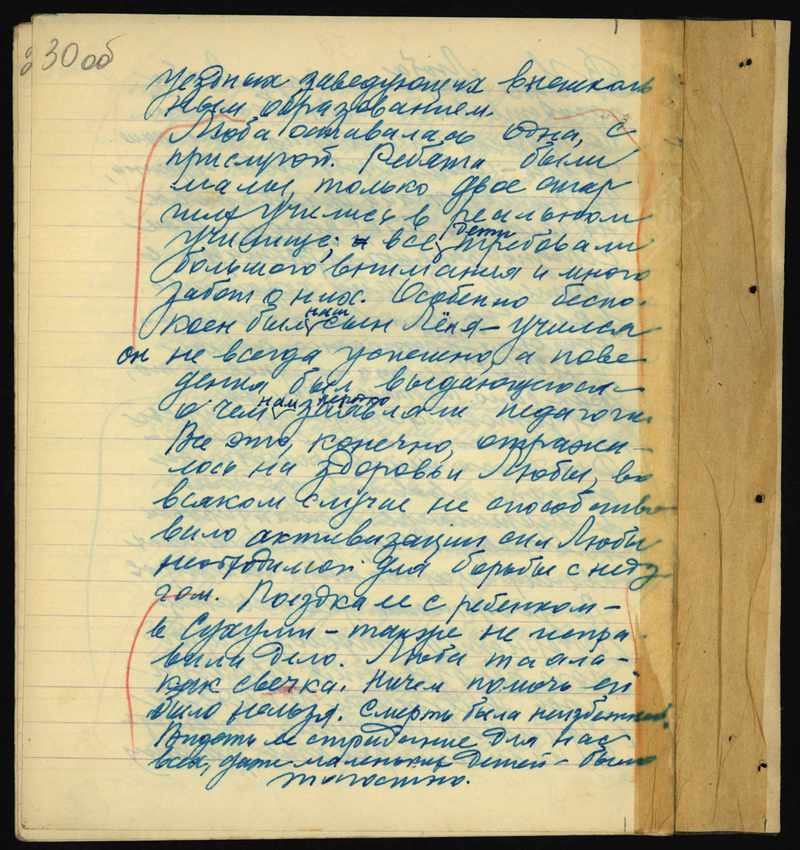 30 об
уездных заведующих внешколь
ным образованием.
Люба оставалась одна, с
прислугой. Ребята были
малы, только двое стар
ших учились в реальном
училище; и все дети требовали
большого внимания и много
забот о них. Особенно беспо-
коен был наш сын Лёня – учился
он не всегда успешно, а пове
дения был выдающегося –
о чем нам нередко заявляли педагоги.
Все это, конечно, отража-
лось на здоровьи Любы, во
всяком случае не способство
вало активизации сил Любы
необходимой для борьбы с неду
гом. Поездка ее с ребенком –
в Сухуми – также не попра-
вила дело. Люба таяла –
как свечка. Ничем помочь ей
было нельзя. Смерть была неизбежной.
Видеть ее страдание для нас
всех, даже маленьких детей – было
тягостно.